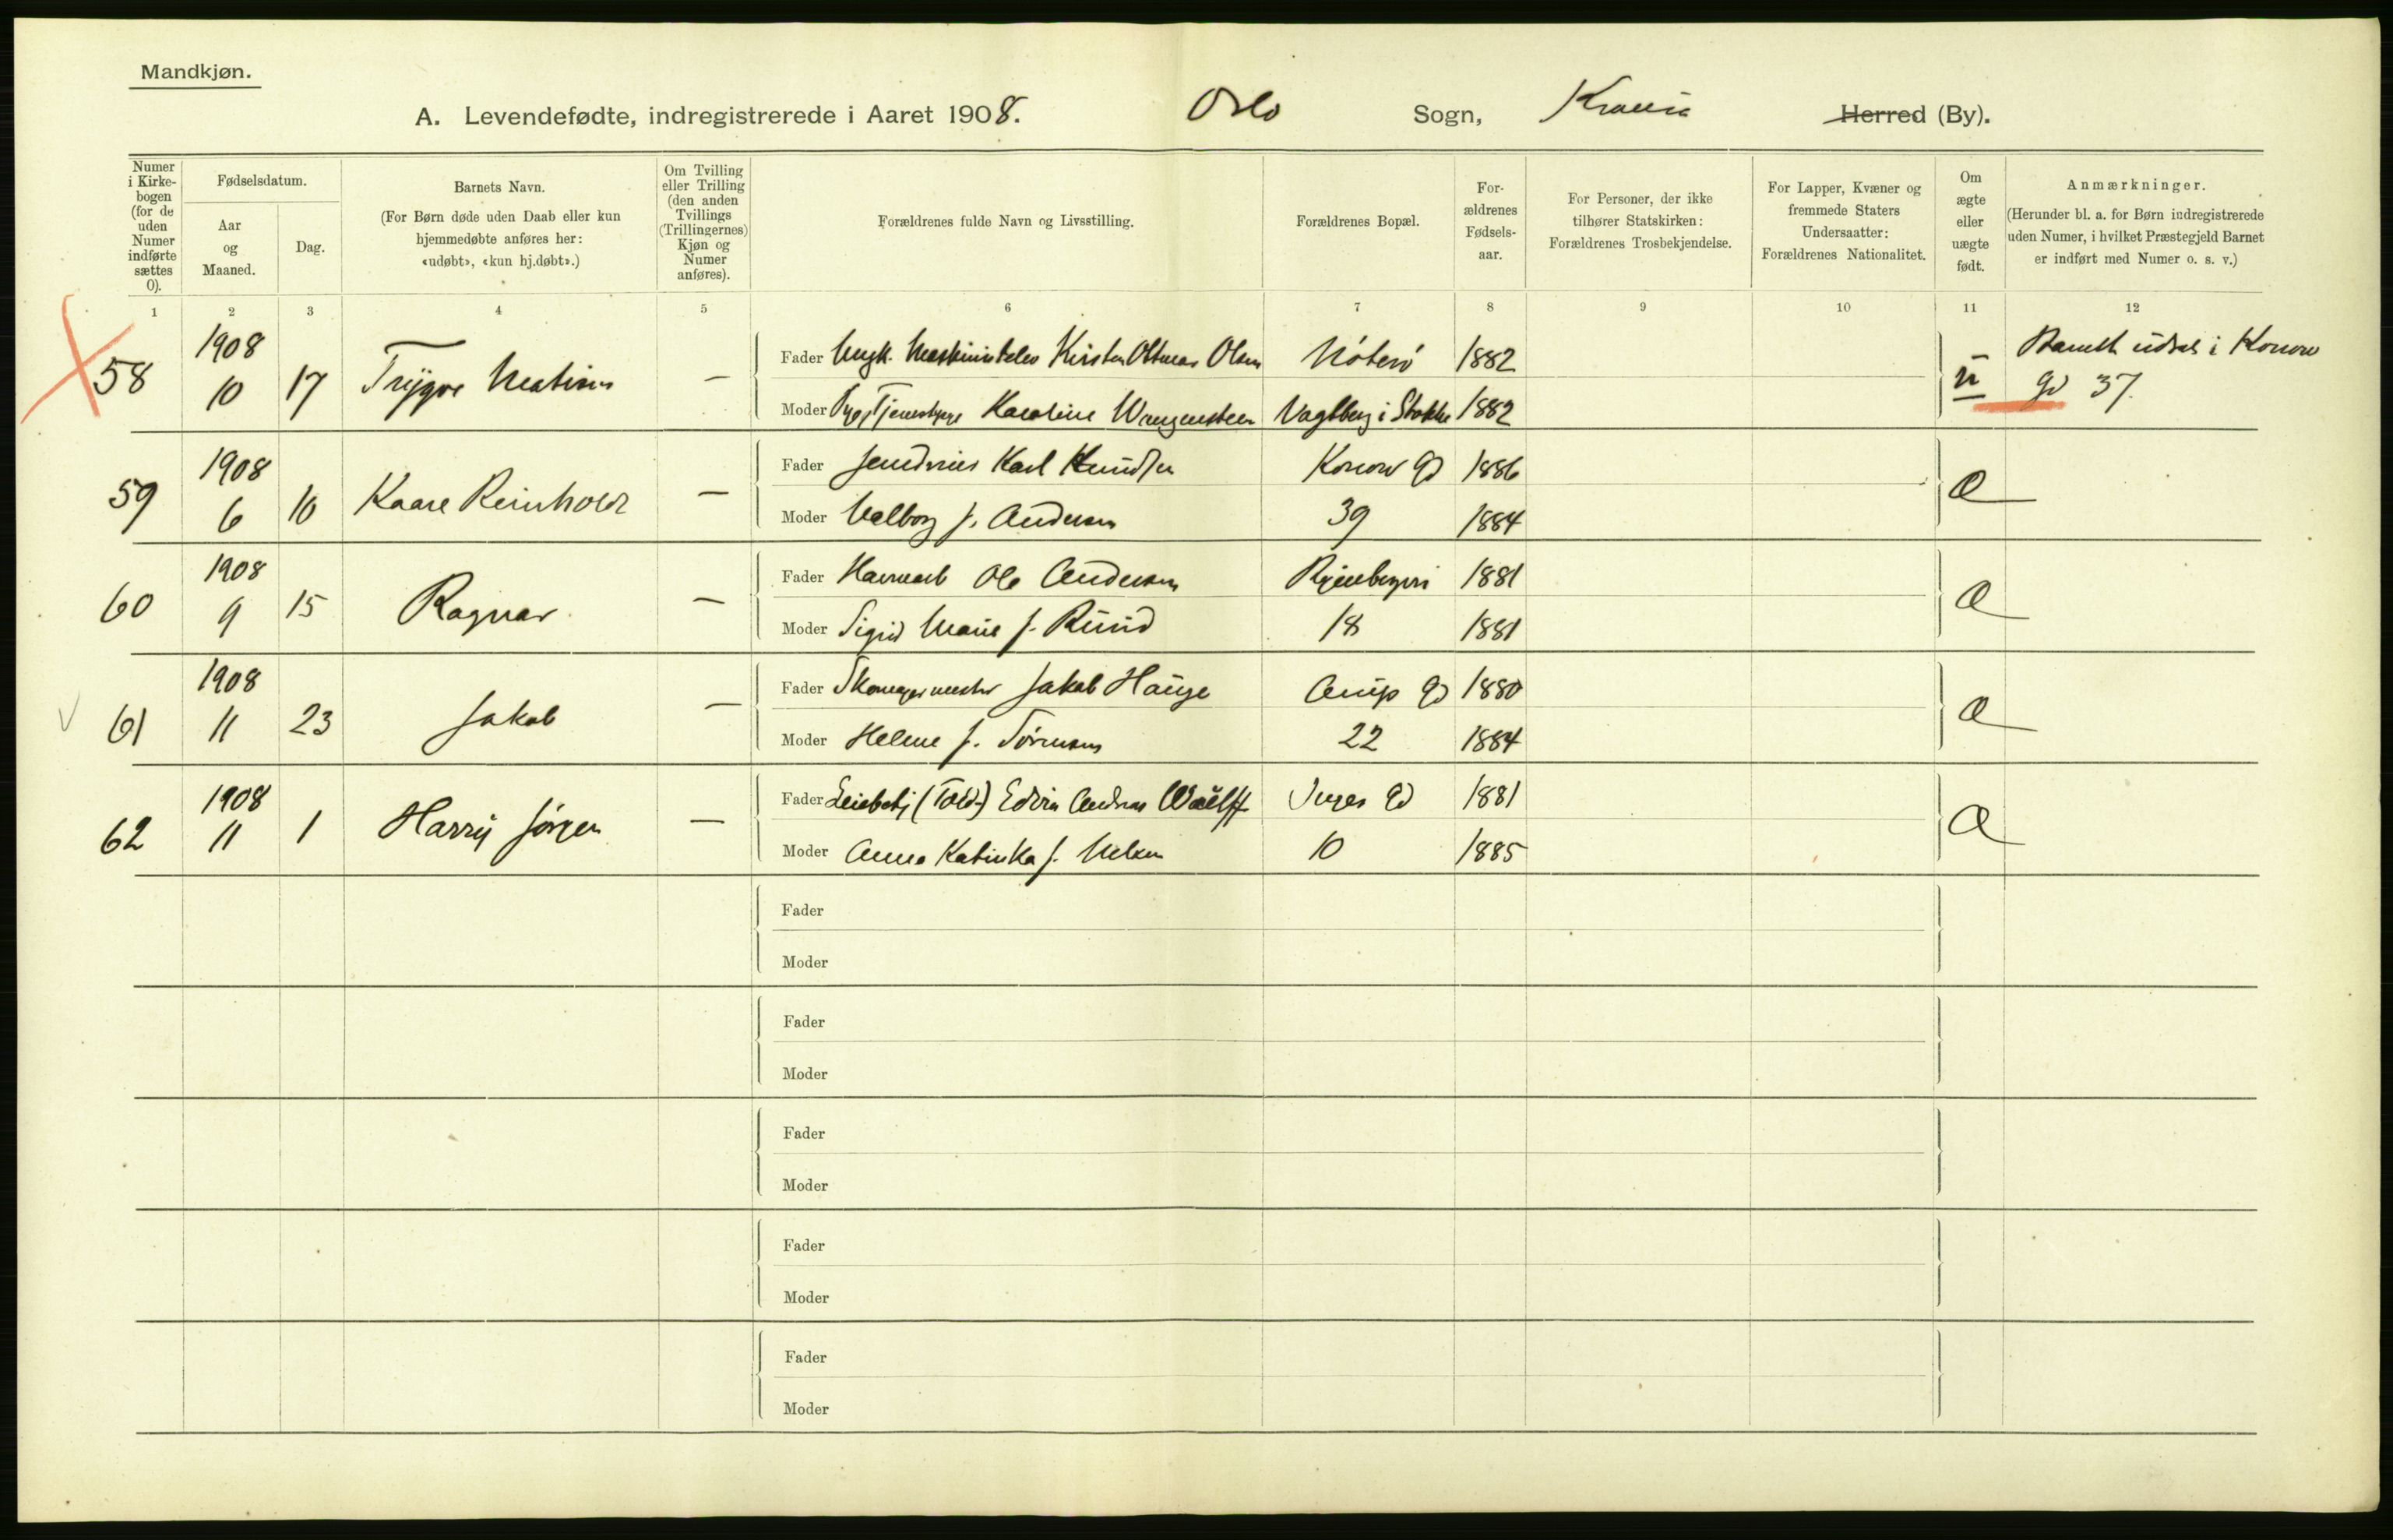 Mandkjøn.
A. Levendefødte, indregistrerede i Aaret 1908. Oslo Sogn, Krania Herred (By).
Numer i Kirke-bogen (for de uden Numer indførte sættes 0).
Fødselsdatum.
Aar og Maaned.
Dag.
Barnets Navn.
(For Børn døde uden Daab eller kun hjemmedøbte anføres her: «udøbt», «kun hj.døbt».)
Om Tvilling eller Trilling (den anden Tvillings (Trillingernes) Kjøn og Numer anføres).
Forældrenes fulde Navn og Livsstilling.
Forældrenes Bopæl.
For-ældrenes Fødsels-aar.
For Personer, der ikke tilhører Statskirken: Forældrenes Trosbekjendelse.
For Lapper, Kvæner og fremmede Staters Undersaatter: Forældrenes Nationalitet.
Om ægte eller uægte født.
Anmærkninger.
(Herunder bl. a. for Børn indregistrerede uden Numer, i hvilket Præstegjeld Barnet er indført med Numer o. s. v.)
1 2 3 4 5 6 7 8 9 10 11 12
58 1908 10 17 Trygve — Fader Ungk. Olsen Nøterø 1882 u Barnet udsat i Konow
Moder Pige, Karoline Stokke 1882 gd 37.
59 1908 6 10 Kaare Reinholdt — Fader Karl Knudsen Konow Gd 1886 æ
Moder Valborg f. Andersen 39 1884
60 1908 9 15 Ragnar — Fader Ole Andersen 1881 æ
Moder Sigrid Marie f. Rund 18 1881
61 1908 11 23 Jakob — Fader Skomagermester Jakob Hauge Gd 1880 æ
Moder Helene f. Sørensen 22 1884
62 1908 11 1 Harry Jørgen — Fader (Told-) Edvin Andreas Wulff Inges Gd 1881 æ
Moder Anna Katinka f. Nilsen 10 1885
Fader
Moder
Fader
Moder
Fader
Moder
Fader
Moder
Fader
Moder